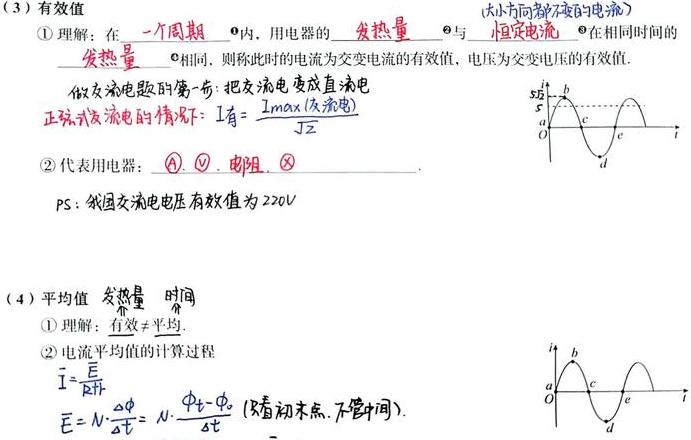 (3) 有效值
(大小方向都不变的电流)
① 理解：在 一个周期 ❶内，用电器的 发热量 ❷与 恒定电流 ❸在相同时间的
发热量 ❹相同，则称此时的电流为交变电流的有效值，电压为交变电压的有效值.
做交流电题的第一步：把交流电变成直流电
正弦式交流电的情况下：I有 = Imax(交流电) / √2
i
5√2
5
a
b
c
d
e
O
t
② 代表用电器：Ⓐ. Ⓥ. 电阻. ⓧ.
PS：我国交流电电压有效值为220V
(4) 平均值 发热量 时间
① 理解：有效≠平均.
② 电流平均值的计算过程
Ī = Ē / R+r
Ē = N·ΔΦ/Δt = N·Φt-Φ₀/Δt (只看初末点.不管中间).
i
a
b
c
d
e
O
t